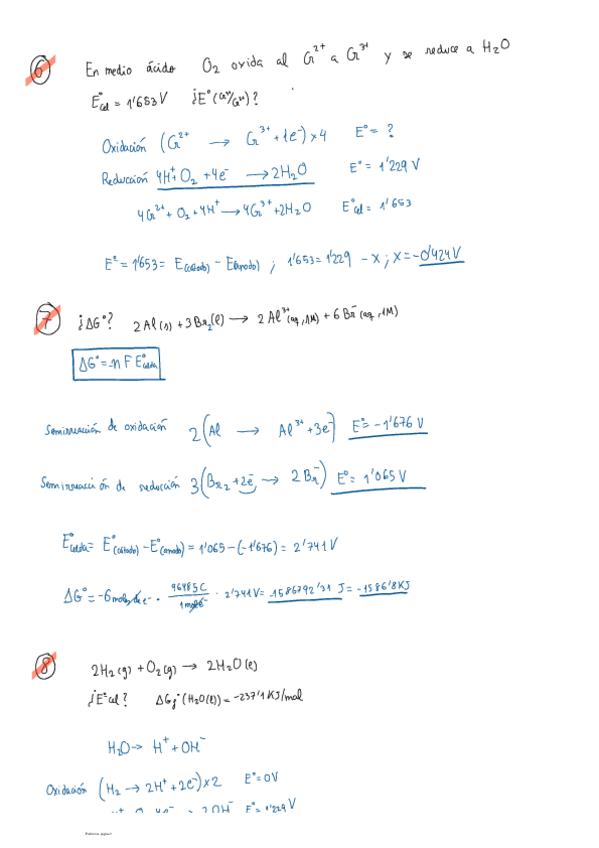 6 En medio ácido O2 oxida al Cr2+ a Cr3+ y se reduce a H2O
E°cel = 1'653 V ¿E°(Cr3+/Cr2+)?
Oxidación (Cr2+ → Cr3+ + 1e-) x 4 E° = ?
Reducción 4H+ + O2 + 4e- → 2H2O E° = 1'229 V
4Cr2+ + O2 + 4H+ → 4Cr3+ + 2H2O E°cel = 1'653
E° = 1'653 = E(cátodo) - E(ánodo) ; 1'653 = 1'229 - x ; x = -0'424 V
7 ¿ΔG°? 2Al(s) + 3Br2(l) → 2Al3+(aq, 1M) + 6Br-(aq, 1M)
ΔG° = -n F E°celda
Semirreacción de oxidación 2(Al → Al3+ + 3e-) E° = -1'676 V
Semirreacción de reducción 3(Br2 + 2e- → 2Br-) E° = 1'065 V
E°celda = E°(cátodo) - E°(ánodo) = 1'065 - (-1'676) = 2'741 V
ΔG° = -6 moles de e- · 96485 C / 1 mol e- · 2'741 V = -1586792'31 J = -1586'8 KJ
8 2H2(g) + O2(g) → 2H2O(l)
¿E°cel? ΔGf°(H2O(l)) = -237'1 KJ/mol
H2O → H+ + OH-
Oxidación (H2 → 2H+ + 2e-) x 2 E° = 0V
2OH- E° = 1'229 V